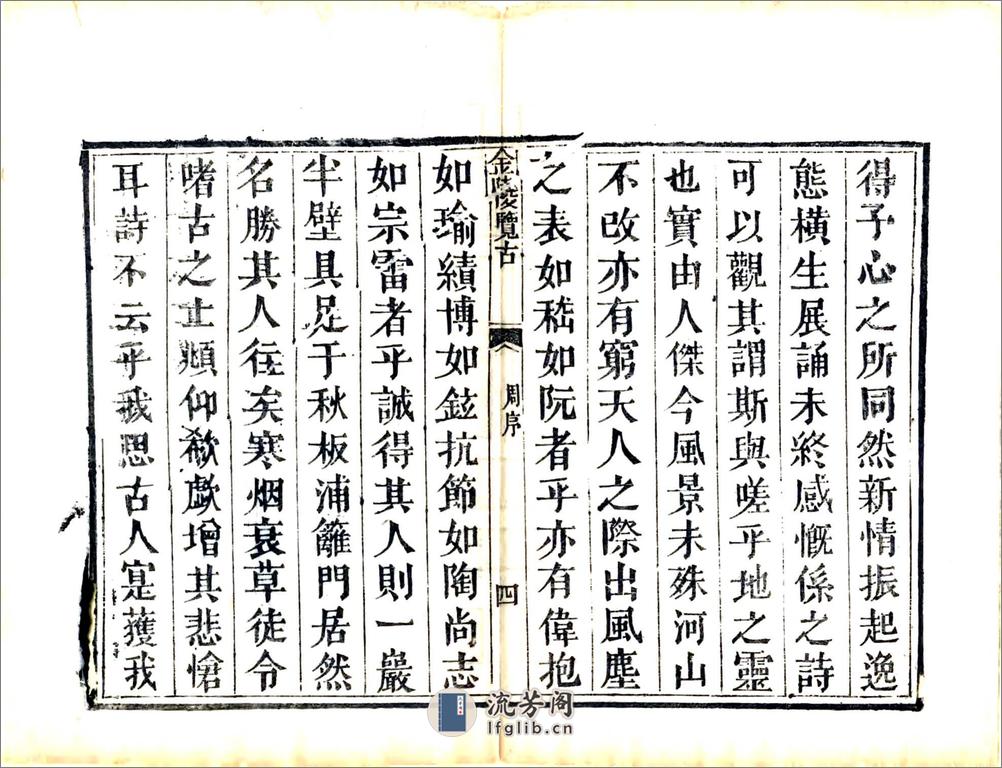 得予心之所同然新情振起逸
態橫生展誦未終感慨係之詩
可以觀其謂斯與嗟乎地之靈
也實由人傑今風景未殊河山
不改亦有窮天人之際出風塵
之表如嵇如阮者乎亦有偉抱
金陵覽古
周序
四
如瑜績博如鉉抗節如陶尚志
如宗雷者乎誠得其人則一巖
半壁具足千秋板浦籬門居然
名勝其人往矣寒烟衰草徒令
嗜古之士頫仰欷歔增其悲愴
耳詩不云乎我思古人寔獲我
流芳阁
lfglib.cn